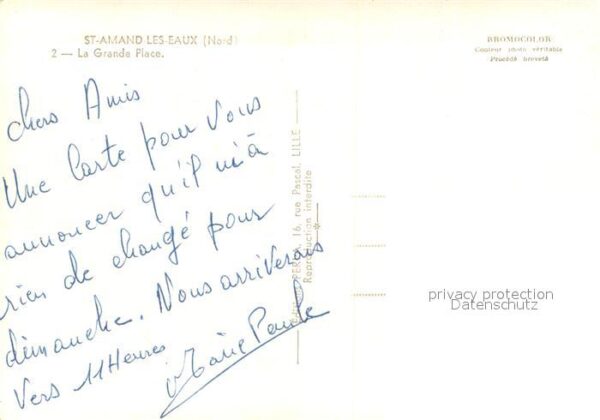 ST-AMAND-LES-EAUX (Nord)
2 — La Grande Place.
BROMOCOLOR
Couleur photo véritable
Procédé breveté
Chers Amis
Une Carte pour vous
annoncer qu'il n'i à
rien de changé pour
dimanche. Nous arriverons
Vers 11 Heures
Marie Paule
16, rue Pascal, LILLE
Reproduction interdite
privacy protection
Datenschutz